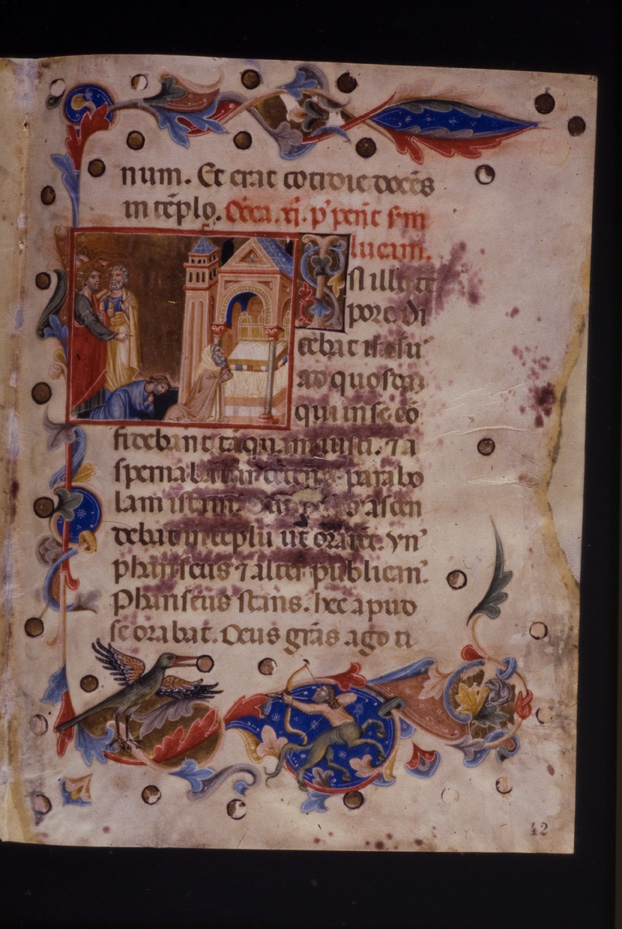 num. Et erat cotidie docēs
in tēplo. Dōca. xj. p' pent̄ s'm
lucam.
IN illo tē
pore. di
cebat ihesus
ad quosdā
qui in se cō
fidebant taquam iusti. ⁊ a
spernabātur ceteros parabo
lam istam. Duo hoīes ascen
debāt in tēplū ut orarēt. Vn'
phariseus ⁊ alter publican'.
Phariseus stans. hec apud
se orabat. Deus grās ago ti
42